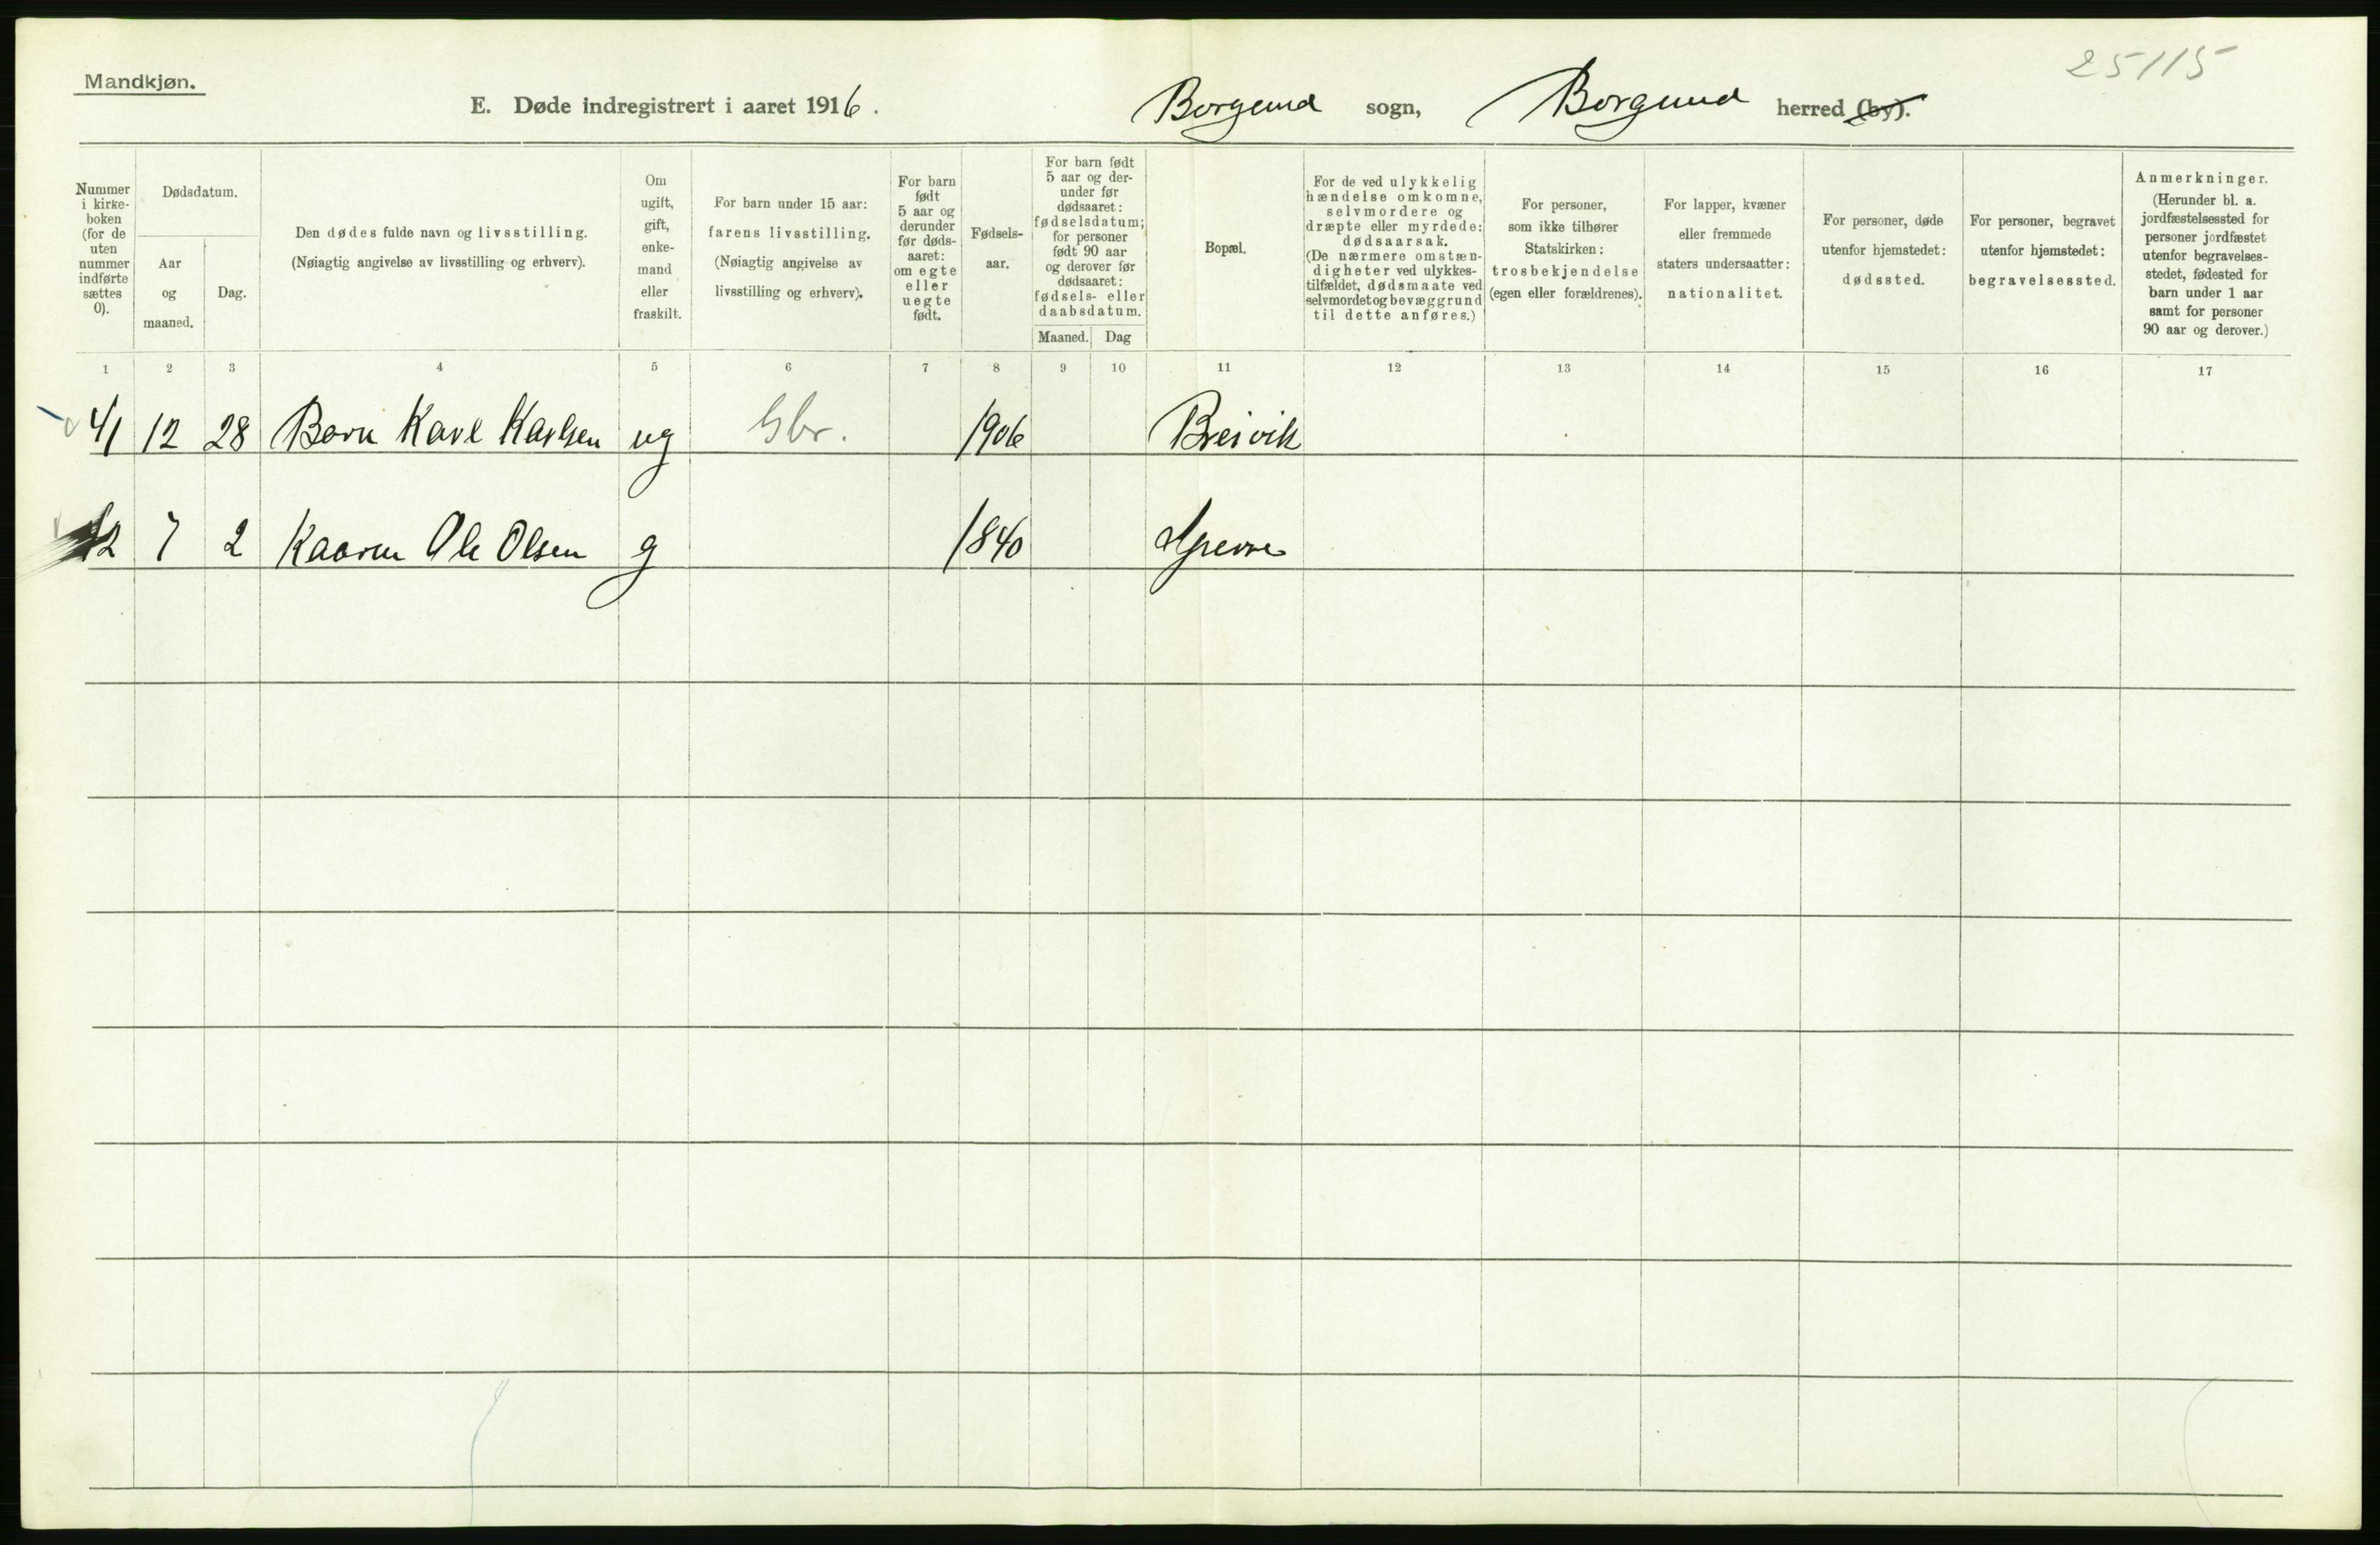 Mandkjøn.
25115
E. Døde indregistrert i aaret 1916. Borgund sogn, Borgund herred (by).
Nummer i kirke-boken (for de uten nummer indførte sættes 0).
Dødsdatum.
Aar og maaned.
Dag.
Den dødes fulde navn og livsstilling.
(Nøiagtig angivelse av livsstilling og erhverv).
Om ugift, gift, enke-mand eller fraskilt.
For barn under 15 aar: farens livsstilling.
(Nøiagtig angivelse av livsstilling og erhverv).
For barn født 5 aar og derunder før døds-aaret: om egte eller uegte født.
Fødsels-aar.
For barn født 5 aar og der-under før dødsaaret: fødselsdatum; for personer født 90 aar og derover før dødsaaret: fødsels- eller daabsdatum.
Maaned. Dag
Bopæl.
For de ved ulykkelig hændelse omkomne, selvmordere og dræpte eller myrdede: dødsaarsak. (De nærmere omstæn-digheter ved ulykkes-tilfældet, dødsmaate ved selvmordet og bevæggrund til dette anføres.)
For personer, som ikke tilhører Statskirken: trosbekjendelse (egen eller forældrenes).
For lapper, kvæner eller fremmede staters undersaatter: nationalitet.
For personer, døde utenfor hjemstedet: dødssted.
For personer, begravet utenfor hjemstedet: begravelsessted.
Anmerkninger. (Herunder bl. a. jordfæstelsessted for personer jordfæstet utenfor begravelses-stedet, fødested for barn under 1 aar samt for personer 90 aar og derover.)
1 2 3 4 5 6 7 8 9 10 11 12 13 14 15 16 17
41 12 28 Barn Karl Karlsen ug Gbr. 1906 Breivik
42 7 2 Kaaren Ole Olsen g 1840